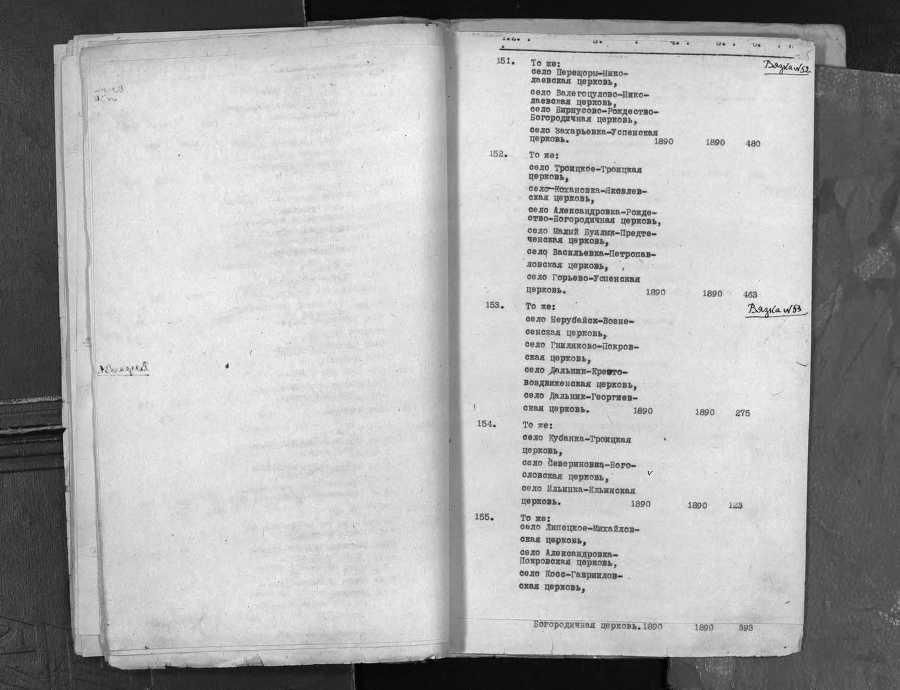 151. То же:
Вязка №52
село Перешоры-Нико-
лаевская церковь,
село Валегоцулово-Нико-
лаевская церковь,
село Бирносово-Рождество-
Богородичная церковь,
село Захарьевка-Успенская
церковь. 1890 1890 480
152. То же:
село Троицкое-Троицкая
церковь,
село-Кохановка-Яковлев-
ская церковь,
село Александровка-Рожде-
ство-Богородичная церковь,
село Малый Буялык-Предте-
ченская церковь,
село Васильевка-Петропав-
ловская церковь,
село Горьево-Успенская
церковь. 1890 1890 463
153. То же:
Вязка №53
село Нерубайск-Возне-
сенская церковь,
село Гниляково-Покров-
ская церковь,
село Дальник-Кресто-
воздвиженская церковь,
село Дальник-Георгиев-
ская церковь. 1890 1890 275
154. То же:
село Кубанка-Троицкая
церковь,
село Севериновка-Бого-
словская церковь,
село Ильинка-Ильинская
церковь. 1890 1890 123
155. То же:
село Липецкое-Михайлов-
ская церковь,
село Александровка-
Покровская церковь,
село Косс-Гавриилов-
ская церковь,
Богородичная церковь. 1890 1890 393